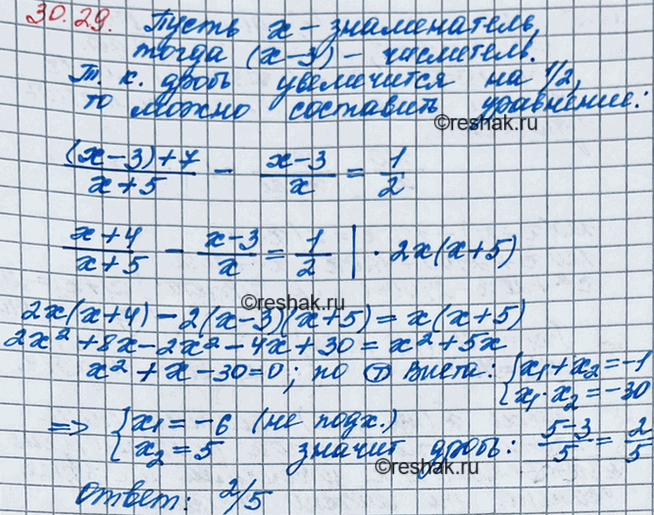 30.29. Пусть x – знаменатель,
тогда (x-3) – числитель.
Т. к. дробь увеличится на 1/2,
то можно составить уравнение:
©reshak.ru
((x-3)+7)/(x+5) - (x-3)/x = 1/2
(x+4)/(x+5) - (x-3)/x = 1/2 | · 2x(x+5)
©reshak.ru
2x(x+4) - 2(x-3)(x+5) = x(x+5)
2x² + 8x - 2x² - 4x + 30 = x² + 5x
x² + x - 30 = 0; по Ⓣ Виета: { x₁ + x₂ = -1
x₁ · x₂ = -30
=> { x₁ = -6 (не подх.)
x₂ = 5 значит дробь: (5-3)/5 = 2/5
©reshak.ru
Ответ: 2/5